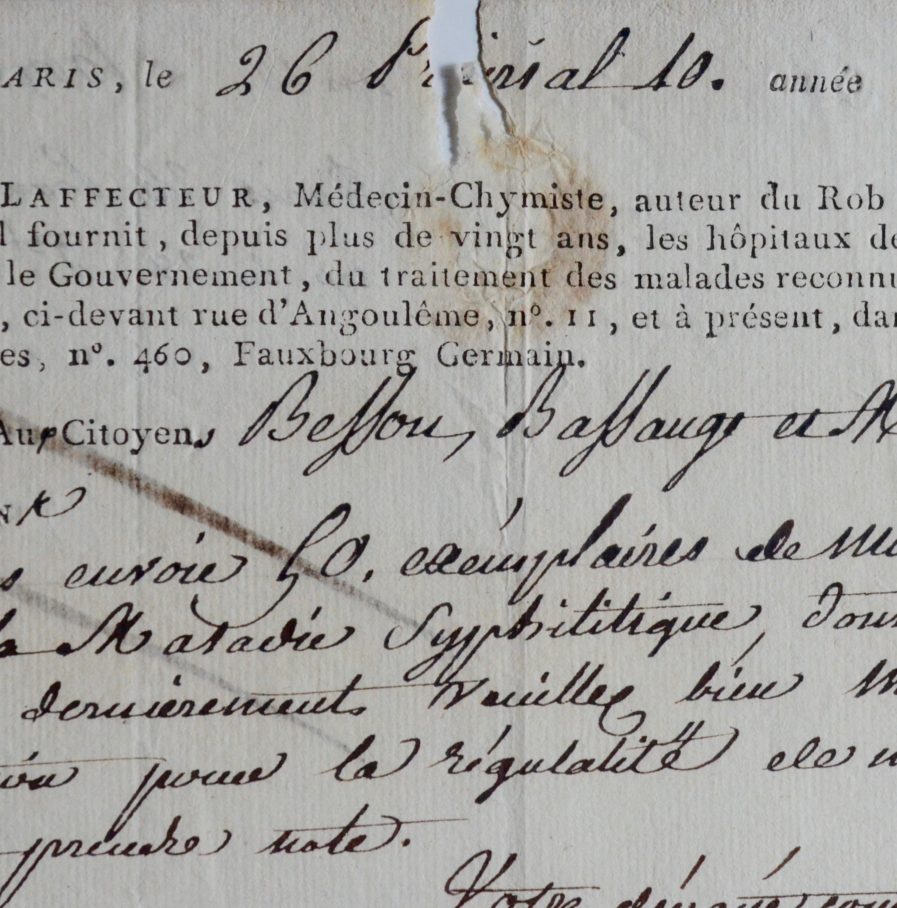 ARIS, le 26 Prairial 10. année
LAFFECTEUR, Médecin-Chymiste, auteur du Rob
l fournit, depuis plus de vingt ans, les hôpitaux de
le Gouvernement, du traitement des malades reconnu
, ci-devant rue d'Angoulême, n°. 11, et à présent, dan
es, n°. 460, Fauxbourg Germain.
Aux Citoyens Besson, Bassange et M
N
s envoie 50. exémplaires de m
la Maladie Syphilitique, dont
dernièrement. Veuillez bien m
pour la régulalité de m
prendre note.
Votre dévoué con